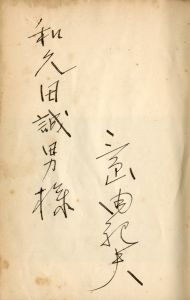 和久田誠男様
三島由紀夫